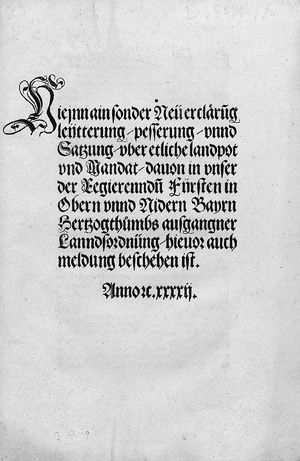 Hieynn ain sonder Neü erclärũg
leütterung / pesserung / vnnd
Satzung / vber etliche landpot
vnd Mandat / dauon in vnser
der Regierenndñ Fürsten in
Obern vnnd Nidern Bayrn
Hertzogthůmbs ausgangner
Lanndsordnũng / hieuor auch
meldung beschehen ist.
Anno ꝛc. xxxxij.